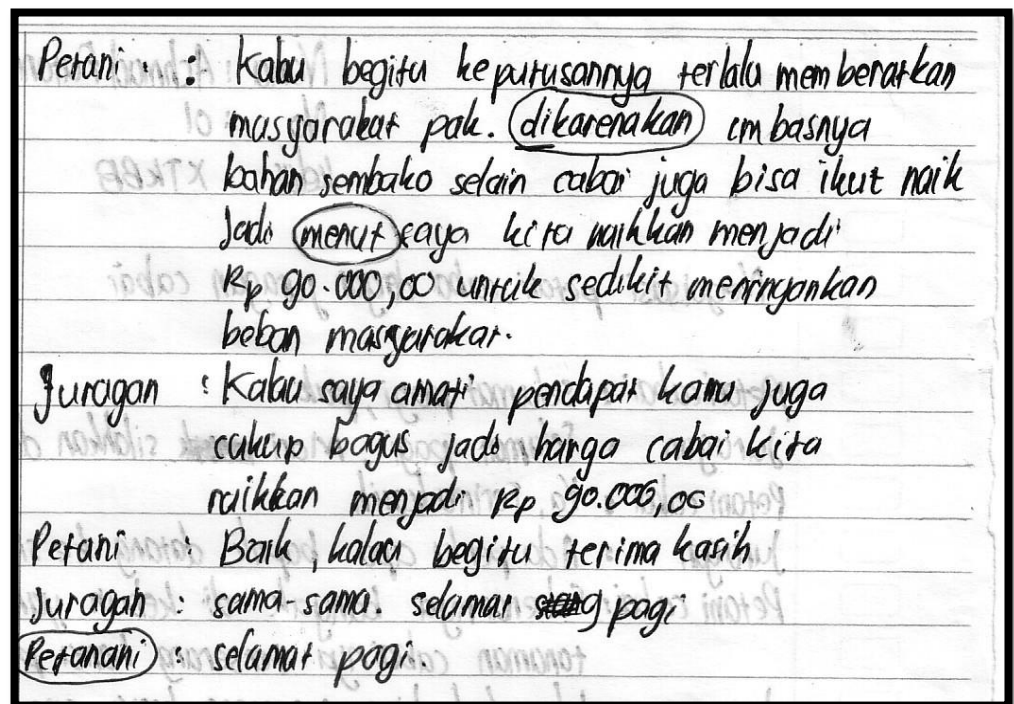 Petani : Kalau begitu keputusannya terlalu memberatkan
masyarakat pak. dikarenakan imbasnya
bahan sembako selain cabai juga bisa ikut naik
Jadi menut saya kita naikkan menjadi
Rp 90.000,00 untuk sedikit meringankan
beban masyarakat.
Juragan : Kalau saya amati pendapat kamu juga
cukup bagus jadi harga cabai kita
naikkan menjadi Rp 90.000,00
Petani : Baik, kalau begitu terima kasih
Juragan : sama-sama. selamat pagi
Petanani : selamat pagi.